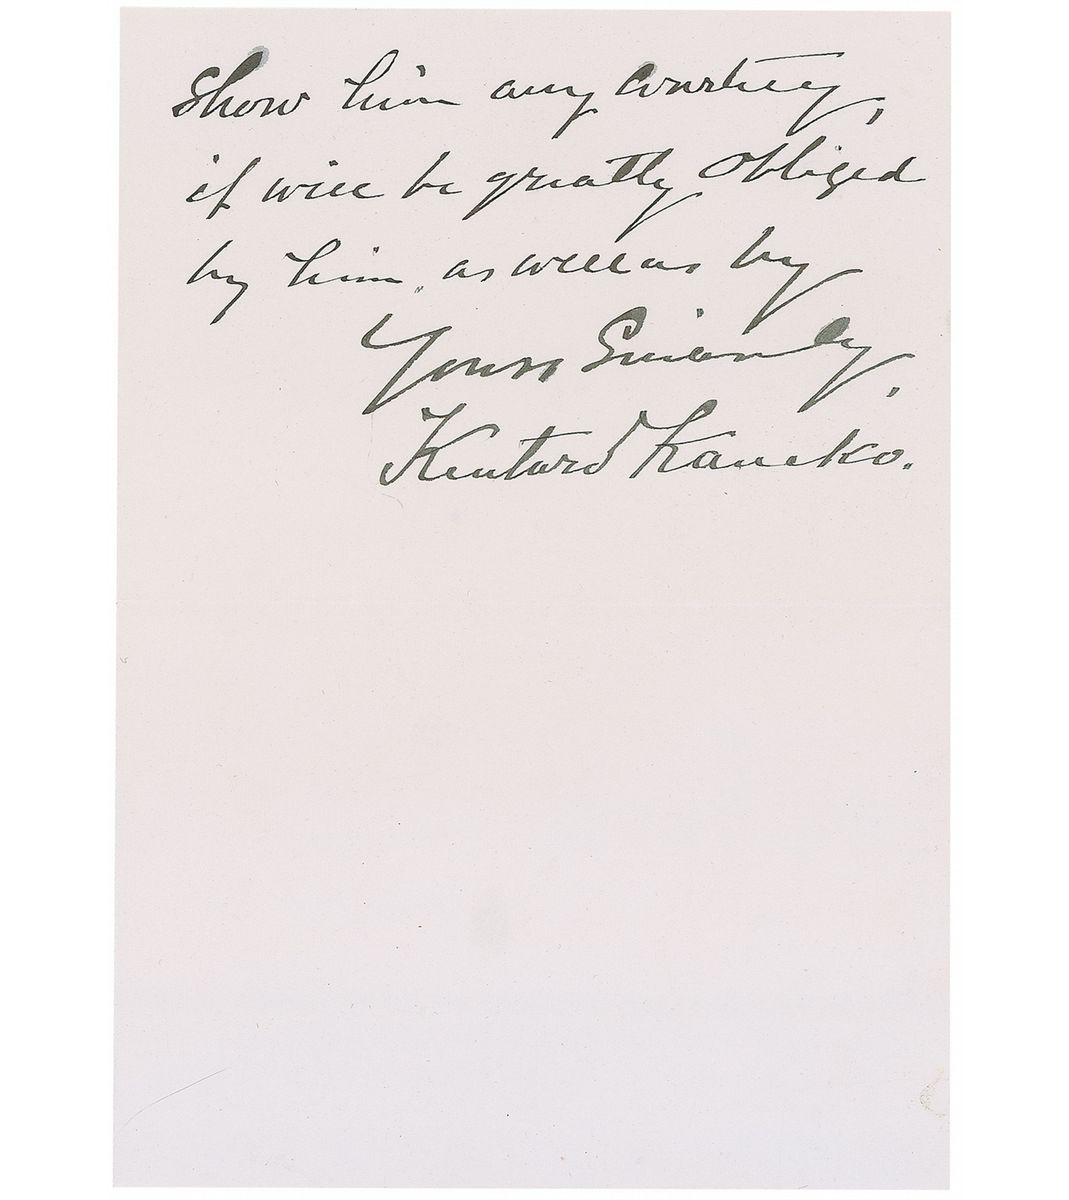 show him any courtesy,
if will be greatly obliged
by him, as well as by
Yours Sincerely,
Kentaro Kaneko.